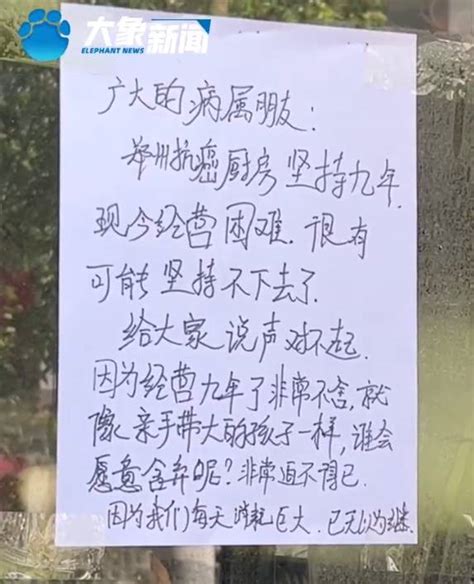 大象新闻
ELEPHANT NEWS
广大的病属朋友:
郑州抗癌厨房坚持九年.
现今经营困难.很有
可能坚持不下去了.
给大家说声对不起.
因为经营九年了非常不舍,就
像亲手带大的孩子一样,谁会
愿意舍弃呢?非常迫不得已.
因为我们每天消耗巨大.已无以为继.